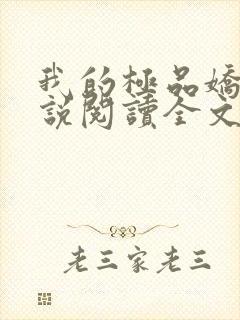 我的極品嬌
說閱讀全文
老三家老三